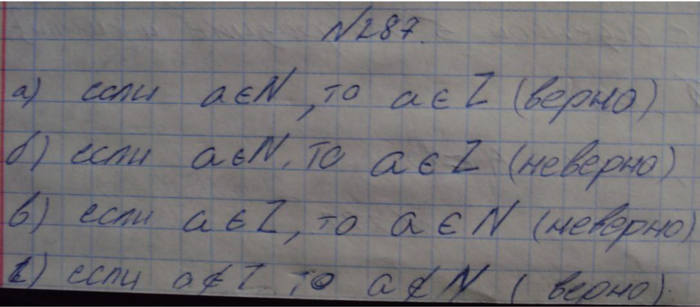 №287.
а) если a∈N, то a∈Z (верно)
б) если a∈N, то a∈Z (неверно)
в) если a∈Z, то a∈N (неверно)
г) если a∉Z то a∉N (верно).